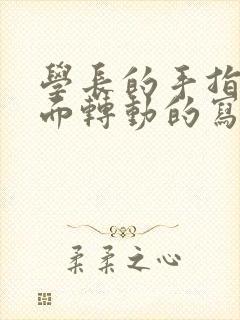 學長的手指
而轉動的寫
柔柔之心